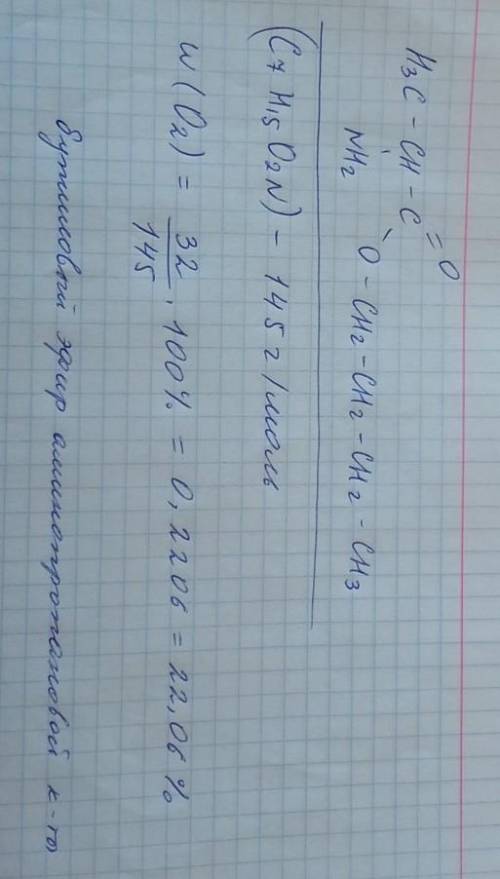 H3C - CH - C = O
NH2 O - CH2 - CH2 - CH2 - CH3
(C7 H15 O2 N) - 145 г/моль
w(O2) = 32/145 · 100% = 0,2206 = 22,06%
бутиловый эфир аминопропановой к-ты